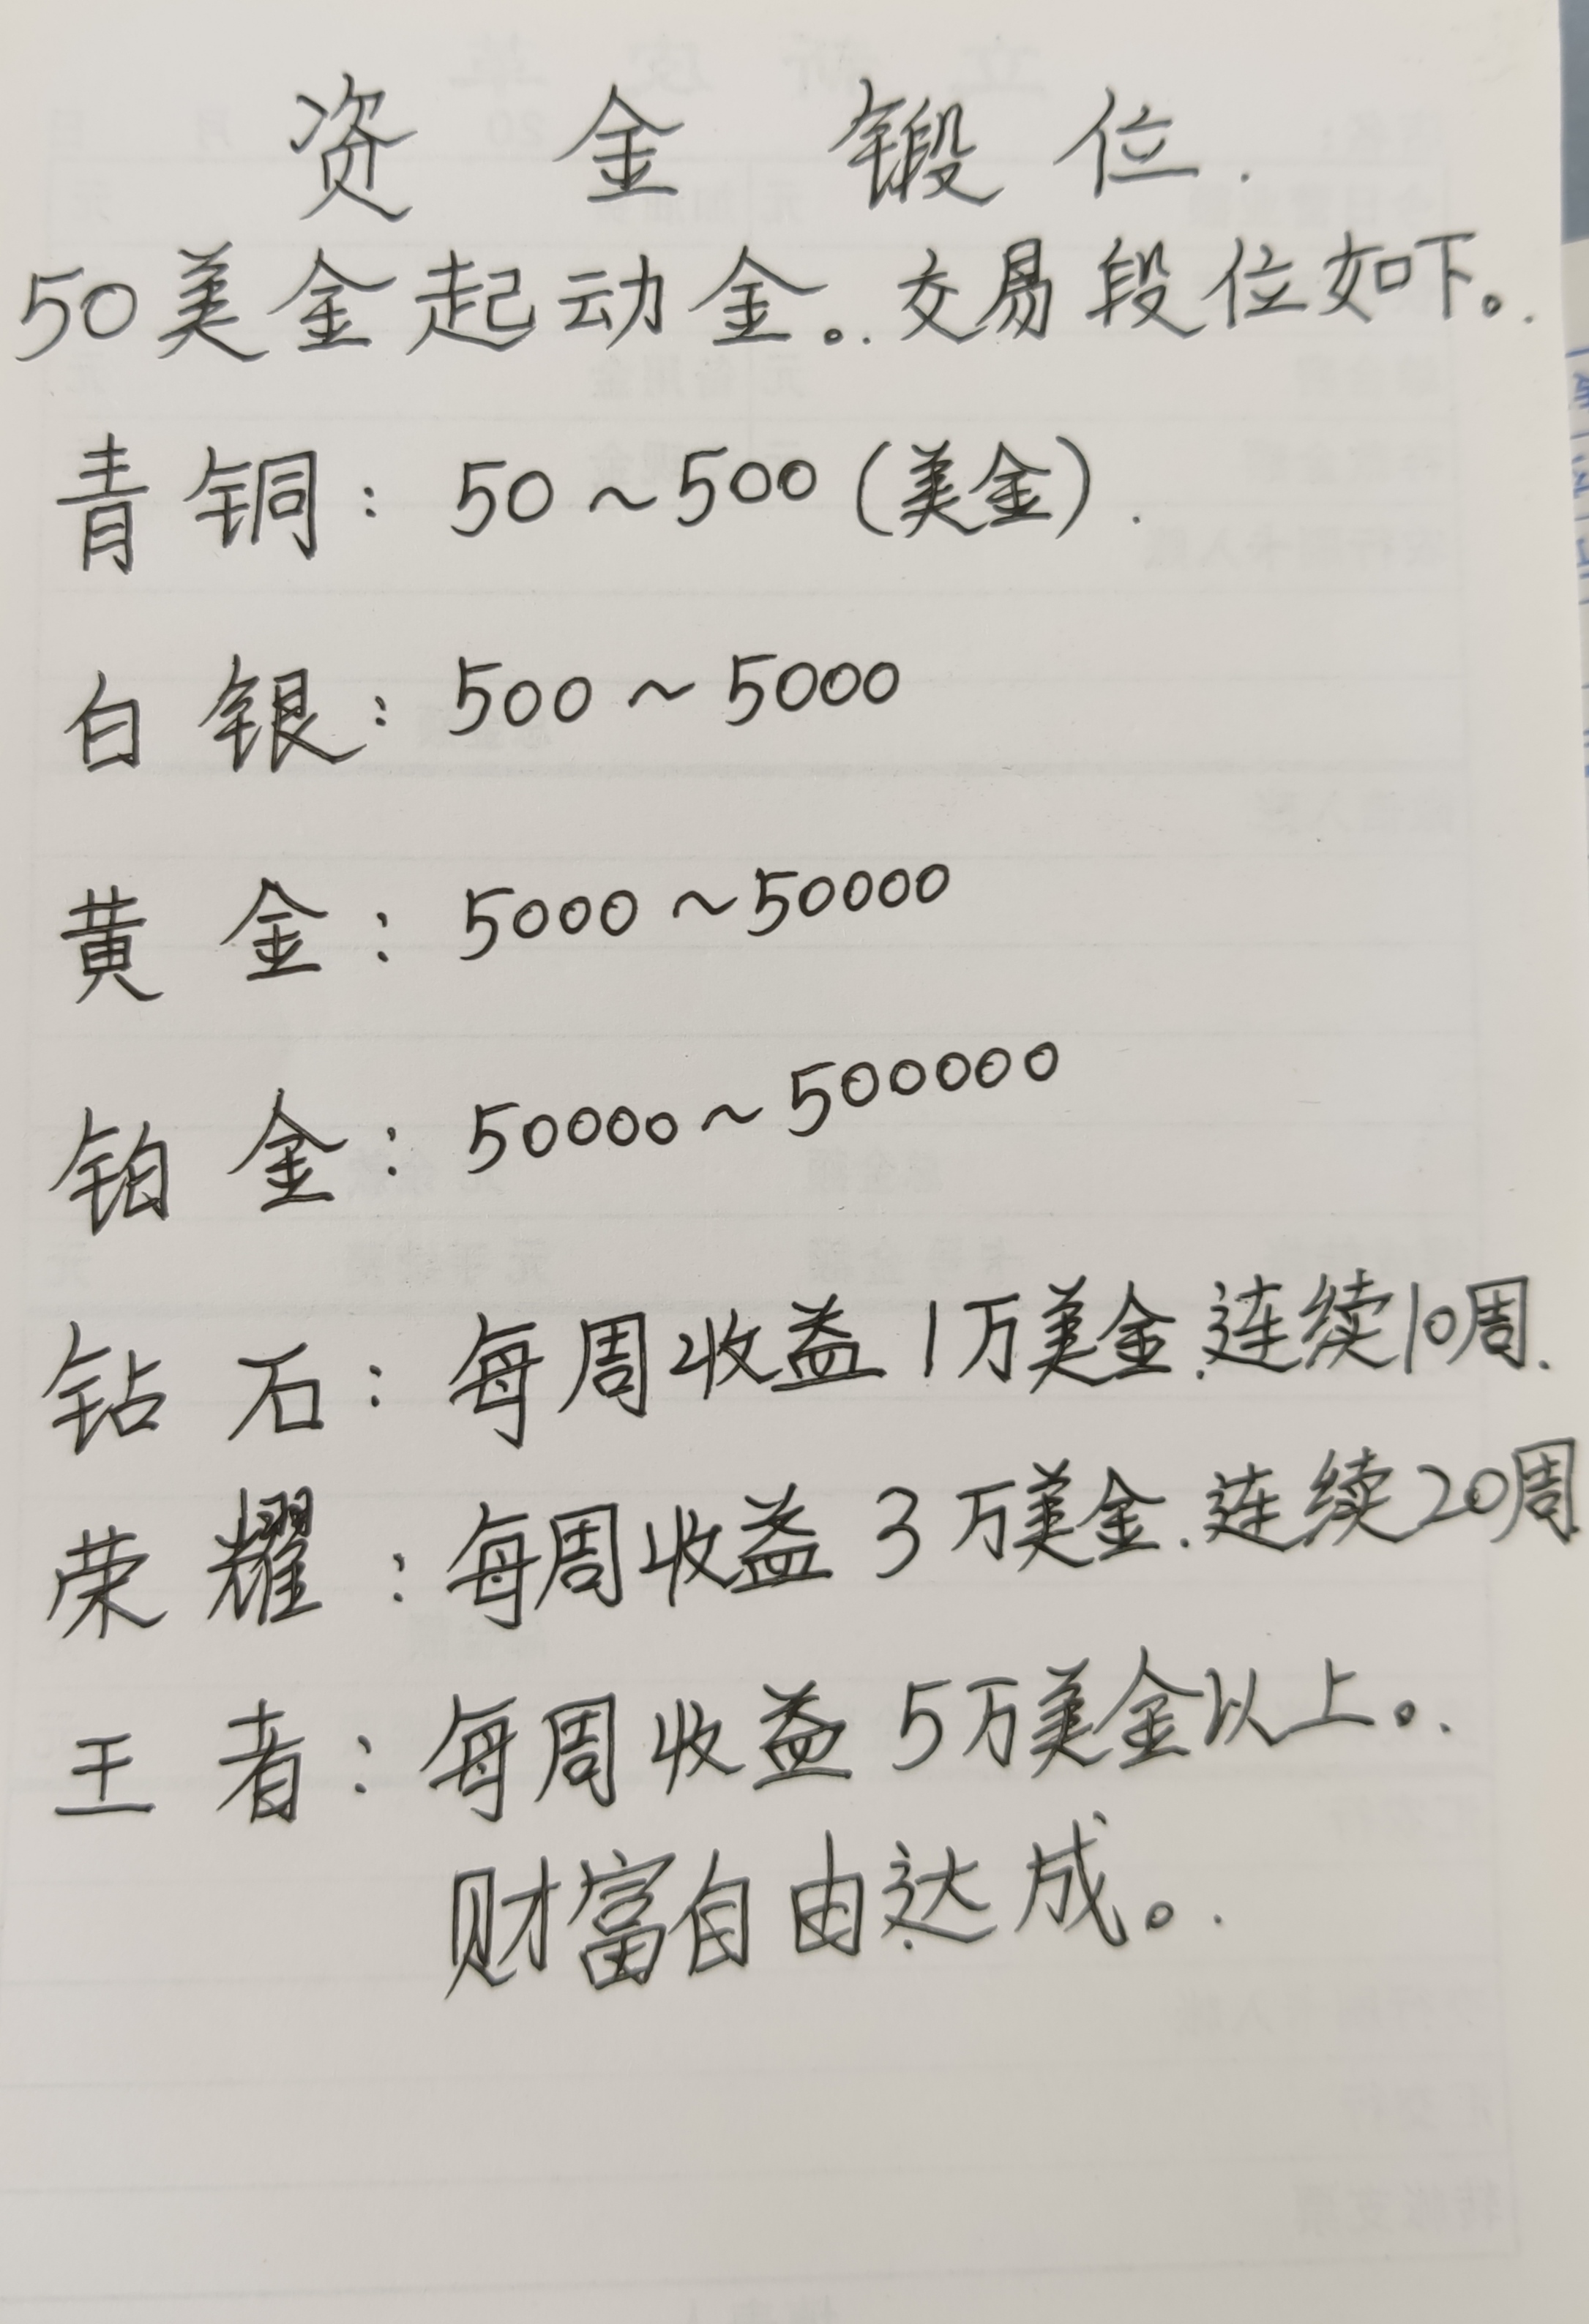 资金锻位.
50美金起动金。.交易段位如下。.
青铜：50～500（美金）.
白银：500～5000
黄金：5000～50000
铂金：50000～500000
钻石：每周收益1万美金.连续10周.
荣耀：每周收益3万美金.连续20周
王者：每周收益5万美金以上。.
财富自由达成。.